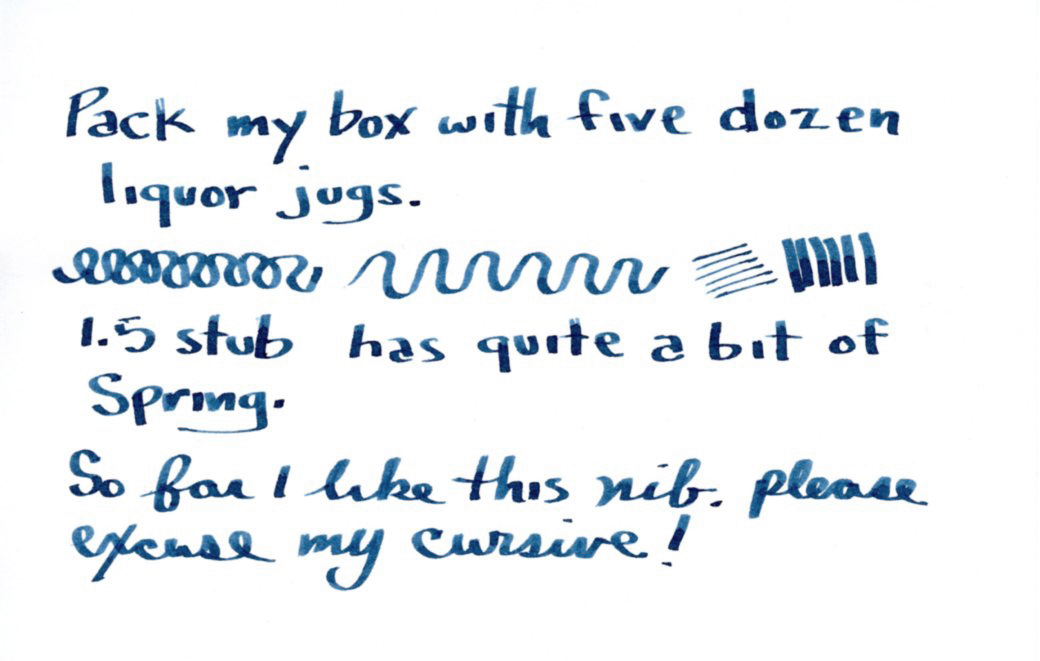 Pack my box with five dozen
liquor jugs.
1.5 stub has quite a bit of
Spring.
So far I like this nib. please
excuse my cursive!